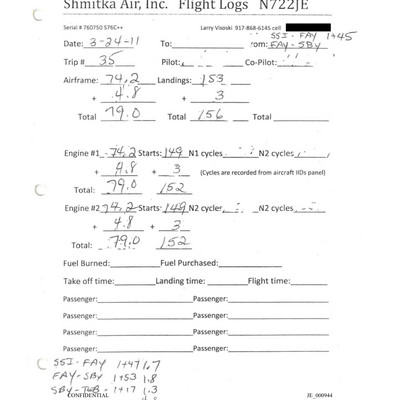 Shmitka Air, Inc. Flight Logs N722JE
Serial # 760750 S76C++ Larry Visoski 917-868-6145 cell
SSI - FAY 1+45
Date: 3-24-11 To: From: FAY-SBY
Trip # 35 Pilot: Co-Pilot:
Airframe: 74.2 Landings: 153
+ 4.8 + 3 +
Total 79.0 Total 156 Total
Engine #1 74.2 Starts: 149 N1 cycles N2 cycles
+ 4.8 + 3 (Cycles are recorded from aircraft IIDs panel)
Total: 79.0 152
Engine #2 74.2 Starts: 149 N2 cycles N2 cycles
+ 4.8 + 3
Total: 79.0 152
Fuel Burned: Fuel Purchased:
Take off time: Landing time: Flight time:
Passenger: Passenger:
Passenger: Passenger:
Passenger: Passenger:
Passenger: Passenger:
SSI-FAY 1+47 1.7
FAY-SBY 1+53 1.8
SBY-TEB 1+17 1.3
4.8
CONFIDENTIAL JE_000944